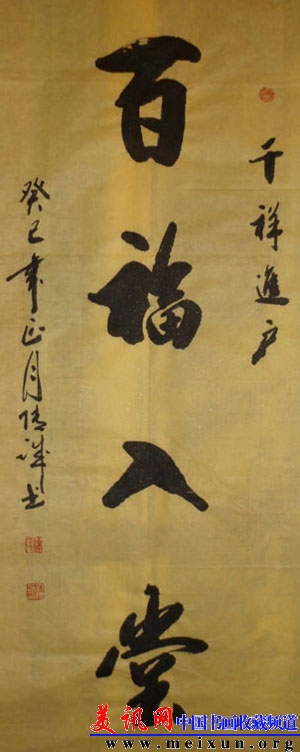 千祥進户
百福入堂
癸巳年正月陈誠书
美讯网
中国书画收藏频道
www.meixun.org